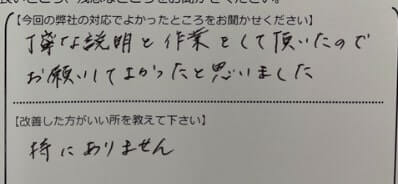 【今回の弊社の対応でよかったところをお聞かせください】
丁寧な説明と作業をして頂いたので
お願いしてよかったと思いました
【改善した方がいい所を教えて下さい】
特にありません